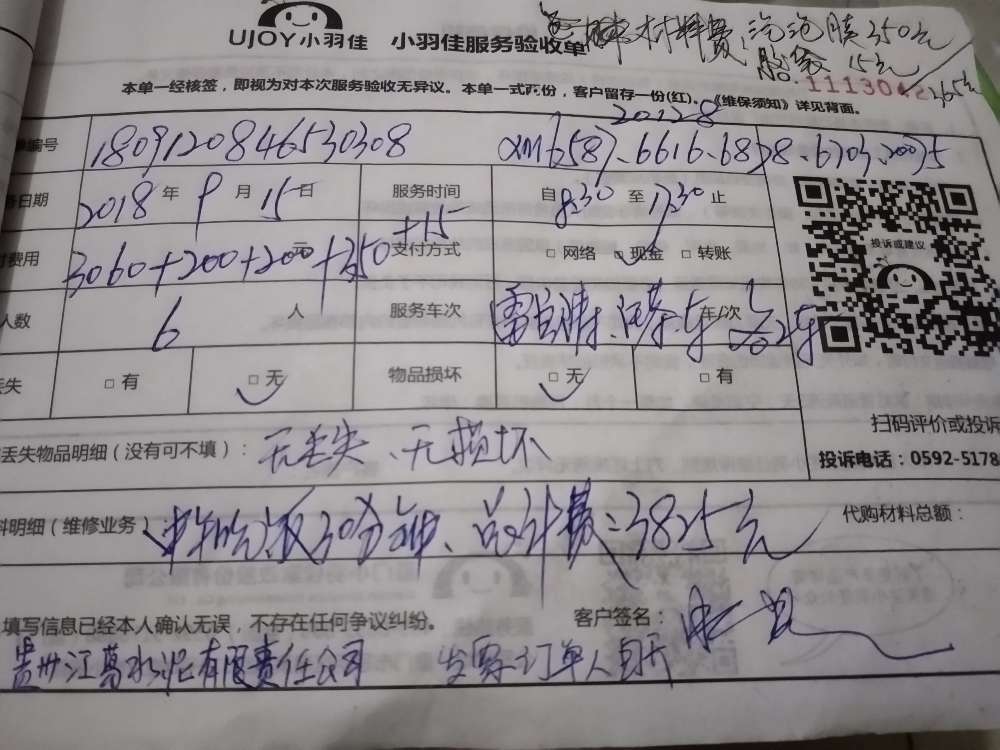 UJOY小羽佳 小羽佳服务验收单
材料费:泡泡膜350元
胶袋 15元
365元
NO. 1113042
本单一经核签，即视为对本次服务验收无异议。本单一式两份，客户留存一份(红)。《维保须知》详见背面。
编号 180912084653030 8 6587、6616、6828、6703、20035
20128
日期 2018年9月15日 服务时间 自8:30至17:30止
费用 3060+200+200+350+15 元 支付方式 □网络 □现金 □转账
投诉或建议
人数 6人 服务车次 车/次
丢失 □有 □无 物品损坏 □无 □有
扫码评价或投诉
丢失物品明细（没有可不填）： 无丢失、无损坏
投诉电话：0592-5178
料明细（维修业务） 中午吃饭30分钟、总计费：3825元 代购材料总额：
填写信息已经本人确认无误，不存在任何争议纠纷。 客户签名：
贵州江葛水泥有限责任公司 发票订单人自开